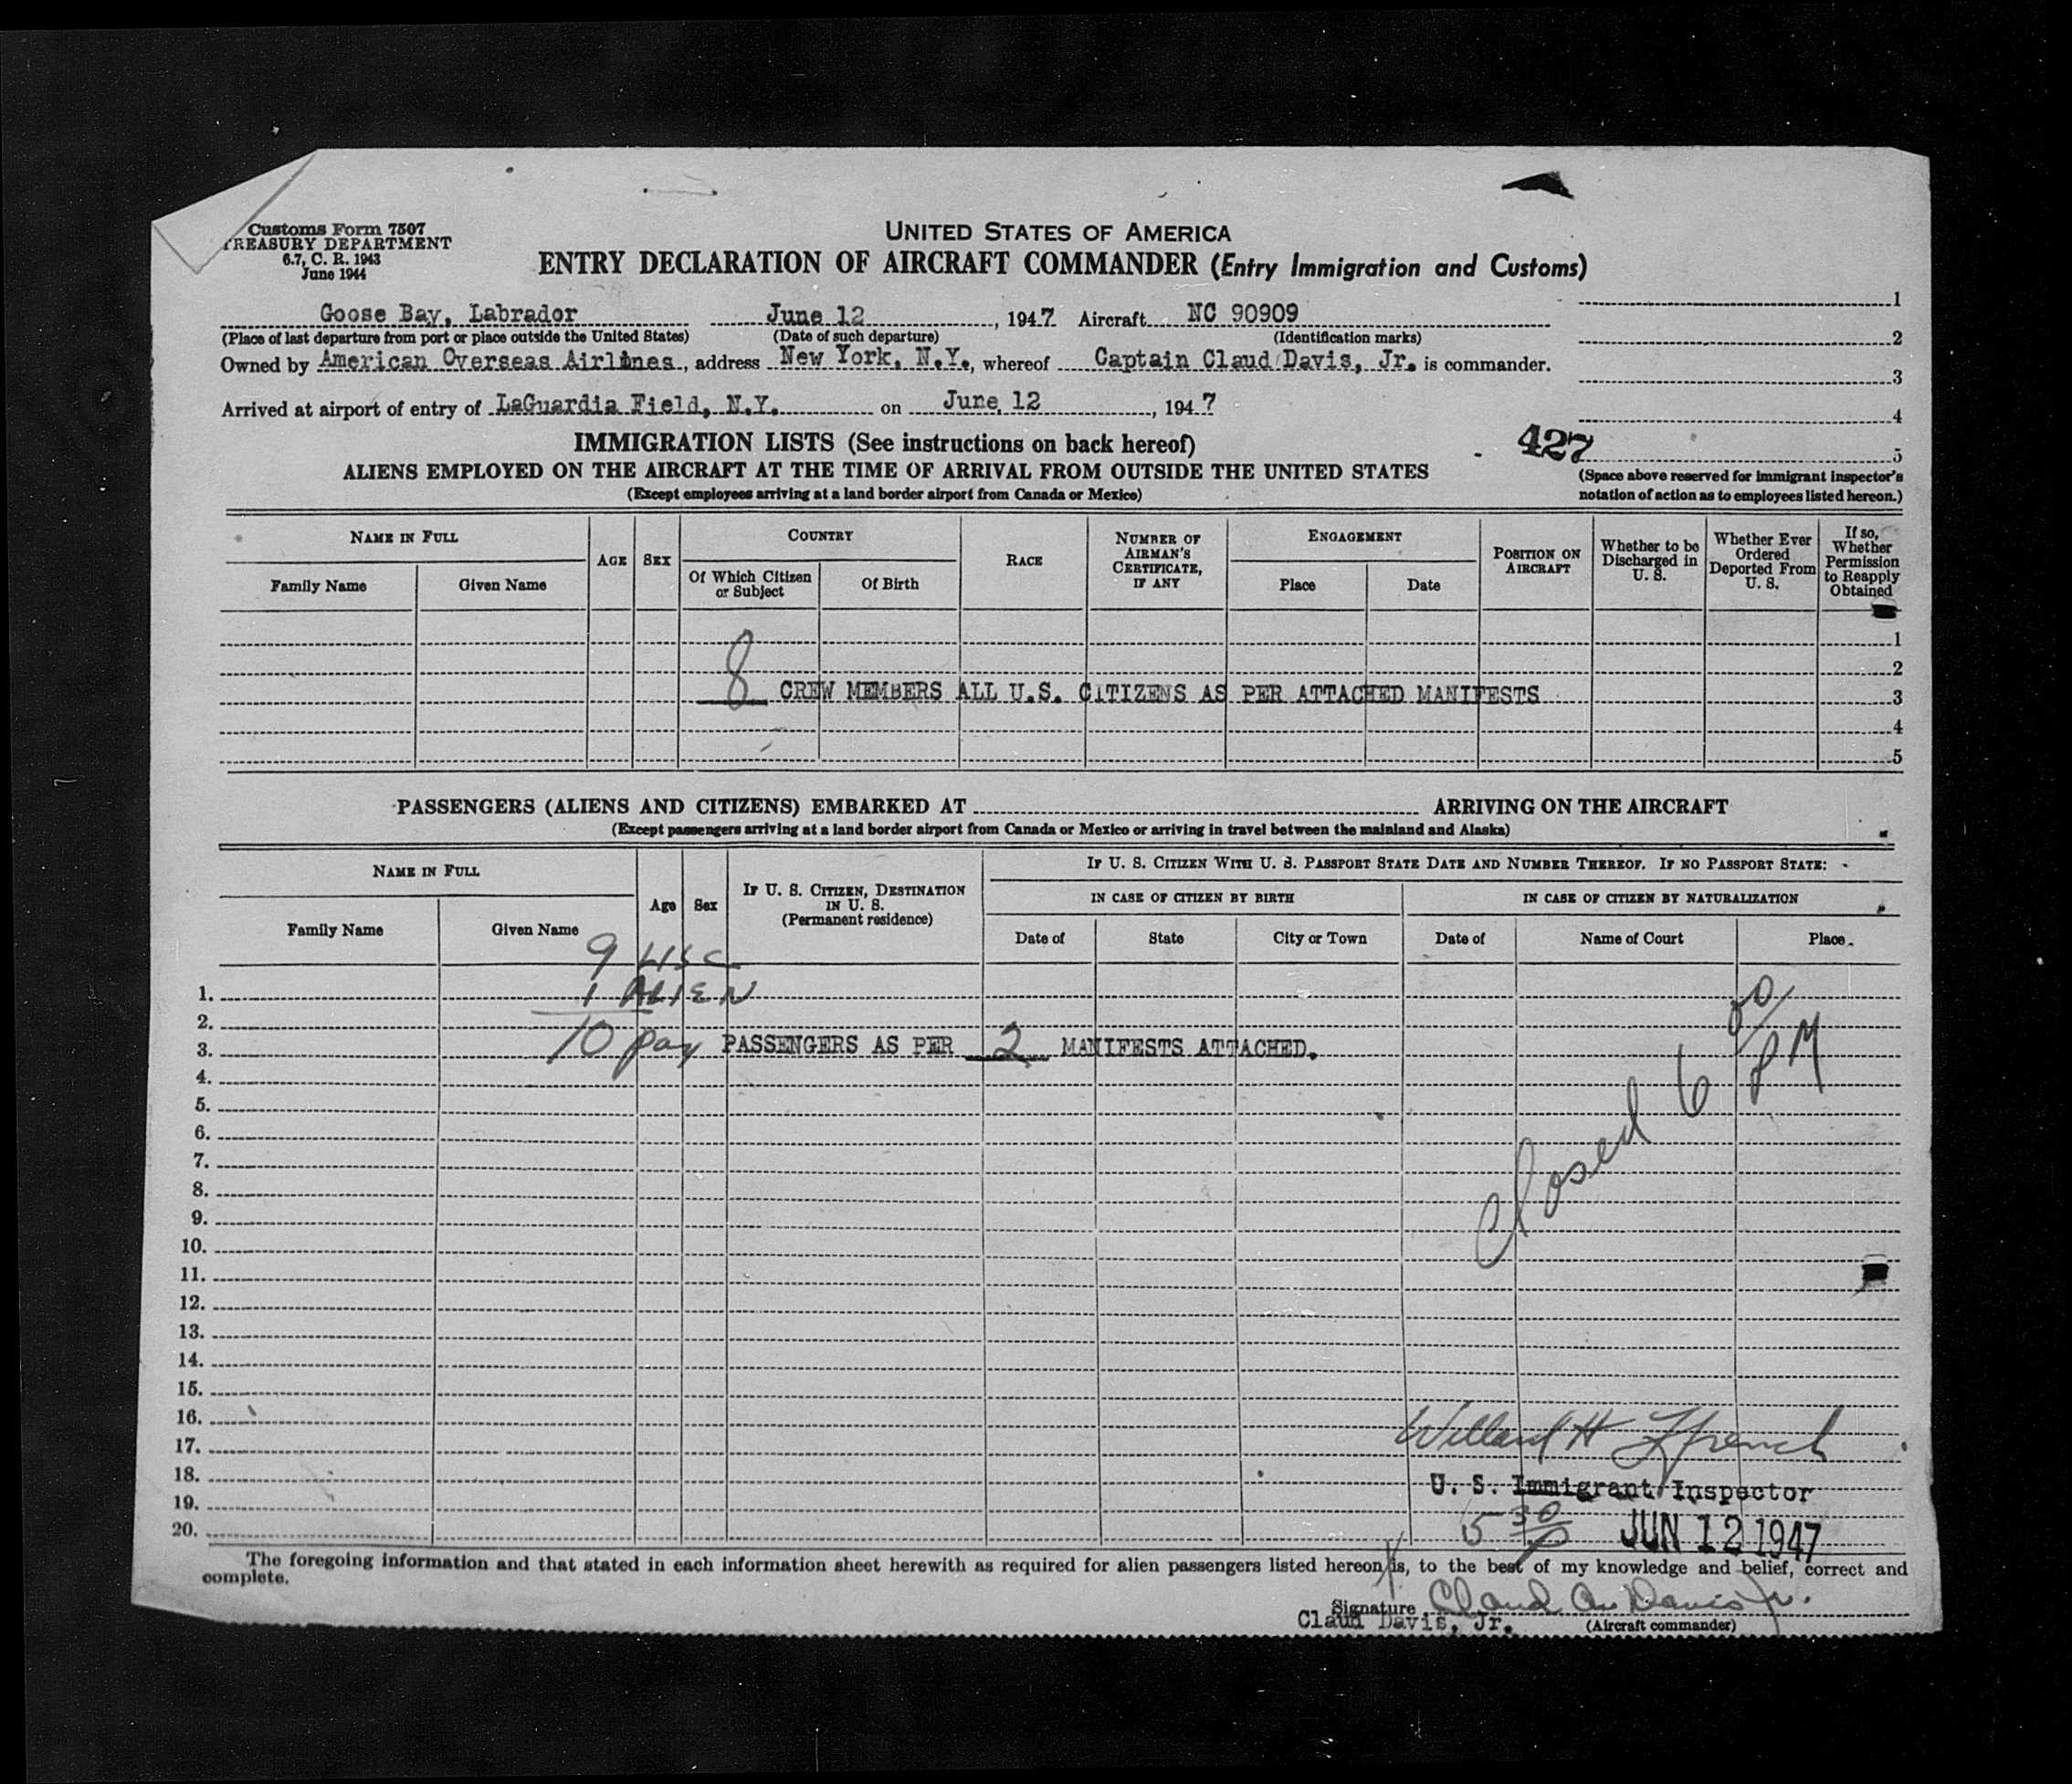 Customs Form 7507
TREASURY DEPARTMENT
6.7, C. R. 1943
June 1944
UNITED STATES OF AMERICA
ENTRY DECLARATION OF AIRCRAFT COMMANDER (Entry Immigration and Customs)
Goose Bay, Labrador June 12, 1947 Aircraft NC 90909 1
(Place of last departure from port or place outside the United States) (Date of such departure) (Identification marks) 2
Owned by American Overseas Airlines, address New York, N.Y., whereof Captain Claud Davis, Jr. is commander. 3
Arrived at airport of entry of LaGuardia Field, N.Y. on June 12, 1947 4
IMMIGRATION LISTS (See instructions on back hereof) 427 5
ALIENS EMPLOYED ON THE AIRCRAFT AT THE TIME OF ARRIVAL FROM OUTSIDE THE UNITED STATES
(Space above reserved for immigrant inspector's
notation of action as to employees listed hereon.)
(Except employees arriving at a land border airport from Canada or Mexico)
NAME IN FULL
Family Name Given Name
AGE SEX
COUNTRY
Of Which Citizen or Subject
Of Birth
RACE
NUMBER OF AIRMAN'S CERTIFICATE, IF ANY
ENGAGEMENT
Place Date
POSITION ON AIRCRAFT
Whether to be Discharged in U. S.
Whether Ever Ordered Deported From U. S.
If so, Whether Permission to Reapply Obtained
1
2
8 CREW MEMBERS ALL U.S. CITIZENS AS PER ATTACHED MANIFESTS 3
4
5
PASSENGERS (ALIENS AND CITIZENS) EMBARKED AT ARRIVING ON THE AIRCRAFT
(Except passengers arriving at a land border airport from Canada or Mexico or arriving in travel between the mainland and Alaska)
NAME IN FULL
Family Name Given Name
Age Sex
IF U. S. CITIZEN, DESTINATION IN U. S.
(Permanent residence)
IF U. S. CITIZEN WITH U. S. PASSPORT STATE DATE AND NUMBER THEREOF. IF NO PASSPORT STATE:
IN CASE OF CITIZEN BY BIRTH
Date of State City or Town
IN CASE OF CITIZEN BY NATURALIZATION
Date of Name of Court Place
9 USC
1. 1 ALIEN
2.
3. 10 pax PASSENGERS AS PER 2 MANIFESTS ATTACHED.
Closed 6 PM
4.
5.
6.
7.
8.
9.
10.
11.
12.
13.
14.
15.
16.
17. Willard H French
18. U. S. Immigrant Inspector
19.
20. 5 30 JUN 12 1947
The foregoing information and that stated in each information sheet herewith as required for alien passengers listed hereon, is, to the best of my knowledge and belief, correct and
complete.
Signature Claud A. Davis Jr.
Claud Davis, Jr. (Aircraft commander)